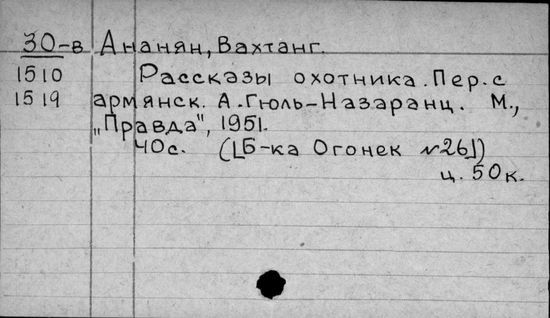 30-в Ананян, Вахтанг.
1510 Рассказы охотника. Пер. с
1519 армянск. А. Гюль-Назаранц. М.,
„Правда", 1951.
40с. ([Б-ка Огонек №26])
ц. 50к.